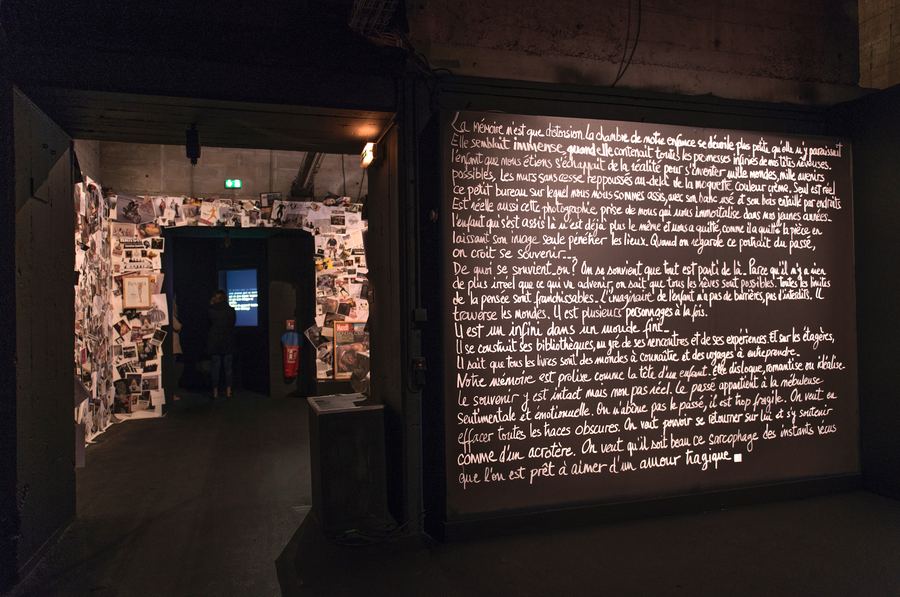 La mémoire n'est que distorsion. La chambre de notre enfance se dévoile plus petite qu'elle n'y paraissait
Elle semblait immense, quand elle contenait toutes les promesses infinies de nos têtes rêveuses.
l'enfant que nous étions s'échappait de la réalité pour s'inventer mille mondes, mille avenirs
possibles, les murs sans cesse repoussés au-delà de la moquette couleur crème. Seul est réel
ce petit bureau sur lequel nous nous sommes assis, avec son banc usé et son bois entaillé par endroits
Est réelle aussi cette photographie prise de nous qui nous immortalise dans nos jeunes années.
l'enfant qui s'est assis là n'est déjà plus le même et nous a quitté, comme il a quitté la pièce en
laissant son image seule pénétrer les lieux. Quand on regarde ce portrait du passé,
on croit se souvenir...
De quoi se souvient-on? On se souvient que tout est parti de là. Parce qu'il n'y a rien
de plus irréel que ce qui va advenir, on sait que tous les rêves sont possibles. Toutes les limites
de la pensée sont franchissables. L'imaginaire de l'enfant n'a pas de barrières, pas d'interdits. Il
traverse les mondes. Il est plusieurs personnages à la fois.
Il est un infini dans un monde fini...
Il se construit ses bibliothèques, au gré de ses rencontres et de ses expériences. Et sur les étagères,
il sait que tous les livres sont des mondes à connaître et des voyages à entreprendre.
Notre mémoire est prolixe comme la tête d'un enfant. Elle dialogue, romantise ou idéalise.
Le souvenir y est intact mais non pas réel. Le passé appartient à la nébuleuse
sentimentale et émotionnelle. On n'abîme pas le passé, il est trop fragile. On veut en
effacer toutes les traces obscures. On veut pouvoir se retourner sur lui et s'y soutenir
comme d'un acrotère. On veut qu'il soit beau ce sarcophage des instants vécus
que l'on est prêt à aimer d'un amour tragique